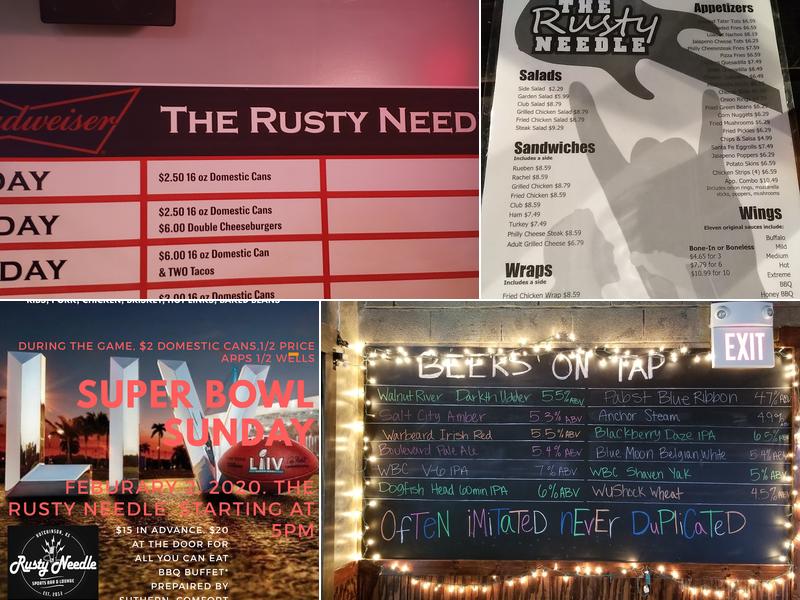 udweiser
THE RUSTY NEED
DAY
$2.50 16 oz Domestic Cans
DAY
$2.50 16 oz Domestic Cans
$6.00 Double Cheeseburgers
DAY
$6.00 16 oz Domestic Can
& TWO Tacos
$2.00 16 oz Domestic Cans
THE
Rusty
NEEDLE
Salads
Side Salad $2.29
Garden Salad $5.99
Club Salad $8.79
Grilled Chicken Salad $8.79
Fried Chicken Salad $8.79
Steak Salad $9.29
Sandwiches
Includes a side
Rueben $8.59
Rachel $8.59
Grilled Chicken $8.79
Fried Chicken $8.79
Club $8.59
Ham $7.49
Turkey $7.49
Philly Cheese Steak $8.59
Adult Grilled Cheese $6.79
Wraps
Includes a side
Fried Chicken Wrap $8.59
Appetizers
Tater Tots $6.59
Fries $6.59
Nachos $8.19
Jalapeno Cheese Tots $6.29
Philly Cheesesteak Fries $7.59
Pizza Fries $6.59
Quesadilla $7.49
Onion Rings
Fried Green Beans $6.29
Corn Nuggets $6.29
Fried Mushrooms $6.29
Fried Pickles $6.29
Chips & Salsa $4.99
Santa Fe Eggrolls $7.49
Jalapeno Poppers $6.29
Potato Skins $6.59
Chicken Strips (4) $6.59
App. Combo $10.49
Includes onion rings, mozzarella
sticks, poppers, mushrooms
Wings
Eleven original sauces include:
Bone-In or Boneless
$4.65 for 3
$7.79 for 6
$10.99 for 10
Buffalo
Mild
Medium
Hot
Extreme
BBQ
Honey BBQ
RIBS, PORK, CHICKEN, BRISKET, HOT LINKS, BAKED BEANS
DURING THE GAME, $2 DOMESTIC CANS,1/2 PRICE
APPS 1/2 WELLS
SUPER BOWL
SUNDAY
LIV
LIV
FEBURARY 2, 2020. THE
RUSTY NEEDLE. STARTING AT
5PM
$15 IN ADVANCE. $20
AT THE DOOR FOR
ALL YOU CAN EAT
BBQ BUFFET*
PREPAIRED BY
SUTHERN COMFORT
HUTCHINSON, KS
Rusty Needle
SPORTS BAR & LOUNGE
EST. 2017
EXIT
BEERS ON TAP
Walnut River Darkth Udder 5.5% ABV
Salt City Amber 5.3% ABV
Warbeard Irish Red 5.5% ABV
Boulevard Pale Ale 5.4% ABV
WBC V-6 IPA 7% ABV
Dogfish Head 60min IPA 6% ABV
Pabst Blue Ribbon 4.7%
Anchor Steam 4.9%
Blackberry Daze IPA 6.5%
Blue Moon Belgian White 5.4%
WBC Shaven Yak 5%
WuShock Wheat 4.5%
OfTeN iMiTaTeD nEvEr DuPliCaTeD